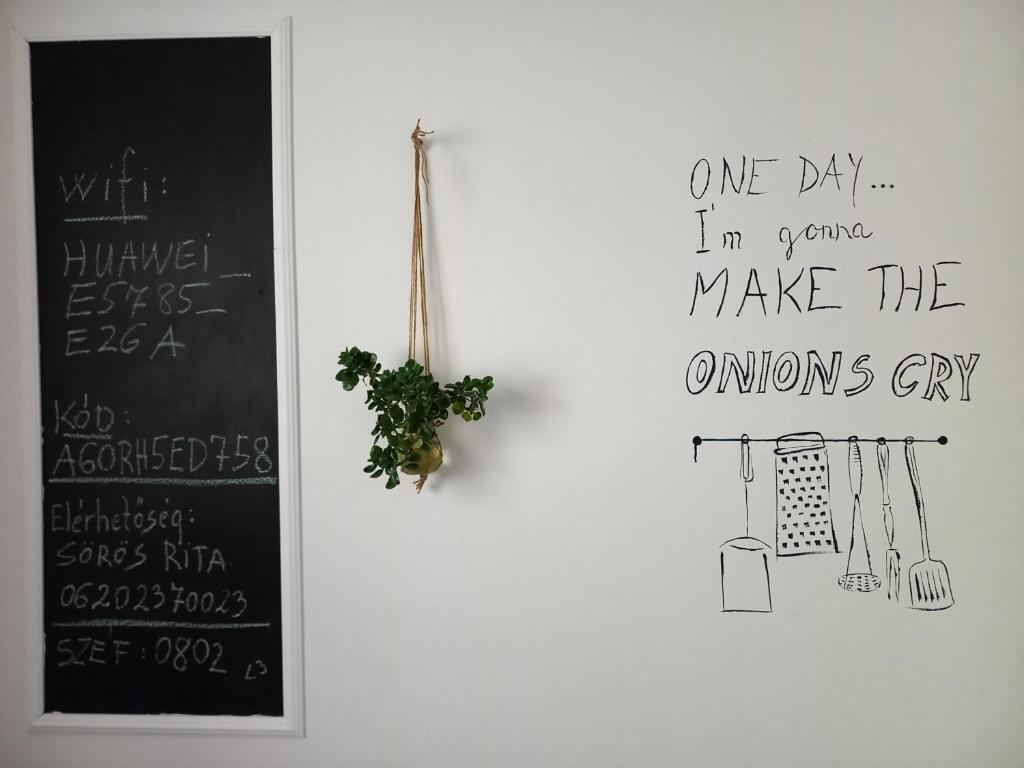 wifi:
HUAWEi_
E5785_
E26A
KóD:
AGORH5ED758
Elérhetőség:
SÖRÖS RiTA
06202370023
SZÉF: 0802
ONE DAY...
I'm gonna
MAKE THE
ONIONS CRY